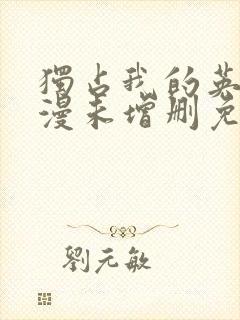 獨占我的英
漫未增刪免
劉元敏